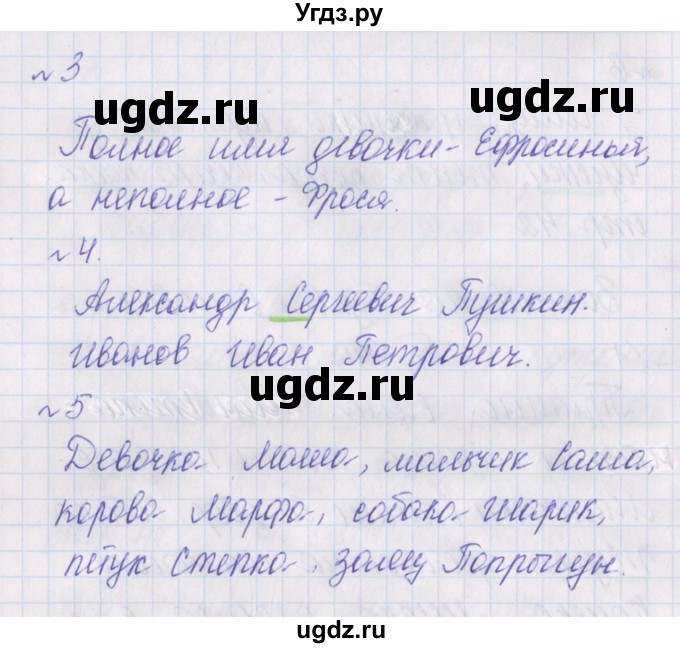 Угдз.ру
№3
ugdz.ru
ugdz.ru
Полное имя девочки - Ефросинья,
а неполное - Фрося.
№4.
Александр Сергеевич Пушкин.
Иванов Иван Петрович.
ugdz.ru
№5
Девочка Маша, мальчик Саша,
корова Марфа, собака Шарик,
петук Степка, заяц Попрыгун.
ugdz.ru
ugdz.ru